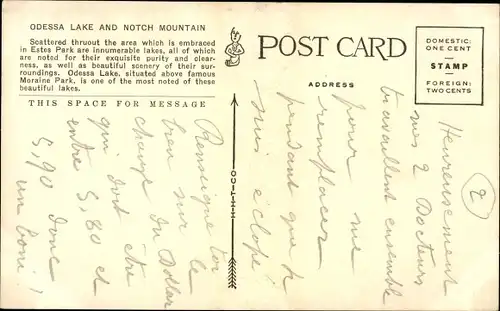 ODESSA LAKE AND NOTCH MOUNTAIN
Scattered thruout the area which is embraced
in Estes Park are innumerable lakes, all of which
are noted for their exquisite purity and clear-
ness, as well as beautiful scenery of their sur-
roundings. Odessa Lake, situated above famous
Moraine Park, is one of the most noted of these
beautiful lakes.
THIS SPACE FOR MESSAGE
POST CARD
ADDRESS
DOMESTIC:
ONE CENT
STAMP
FOREIGN:
TWO CENTS
HHT-CO
2
Heureusement
mes 2 Docteurs
travaillent ensemble
pour me
remplacer
pendant que je
suis éclopé
Renseigne toi
bien sur le
change du Dollar
qui doit être
entre 5,80 et
5,90 donc
un boni !